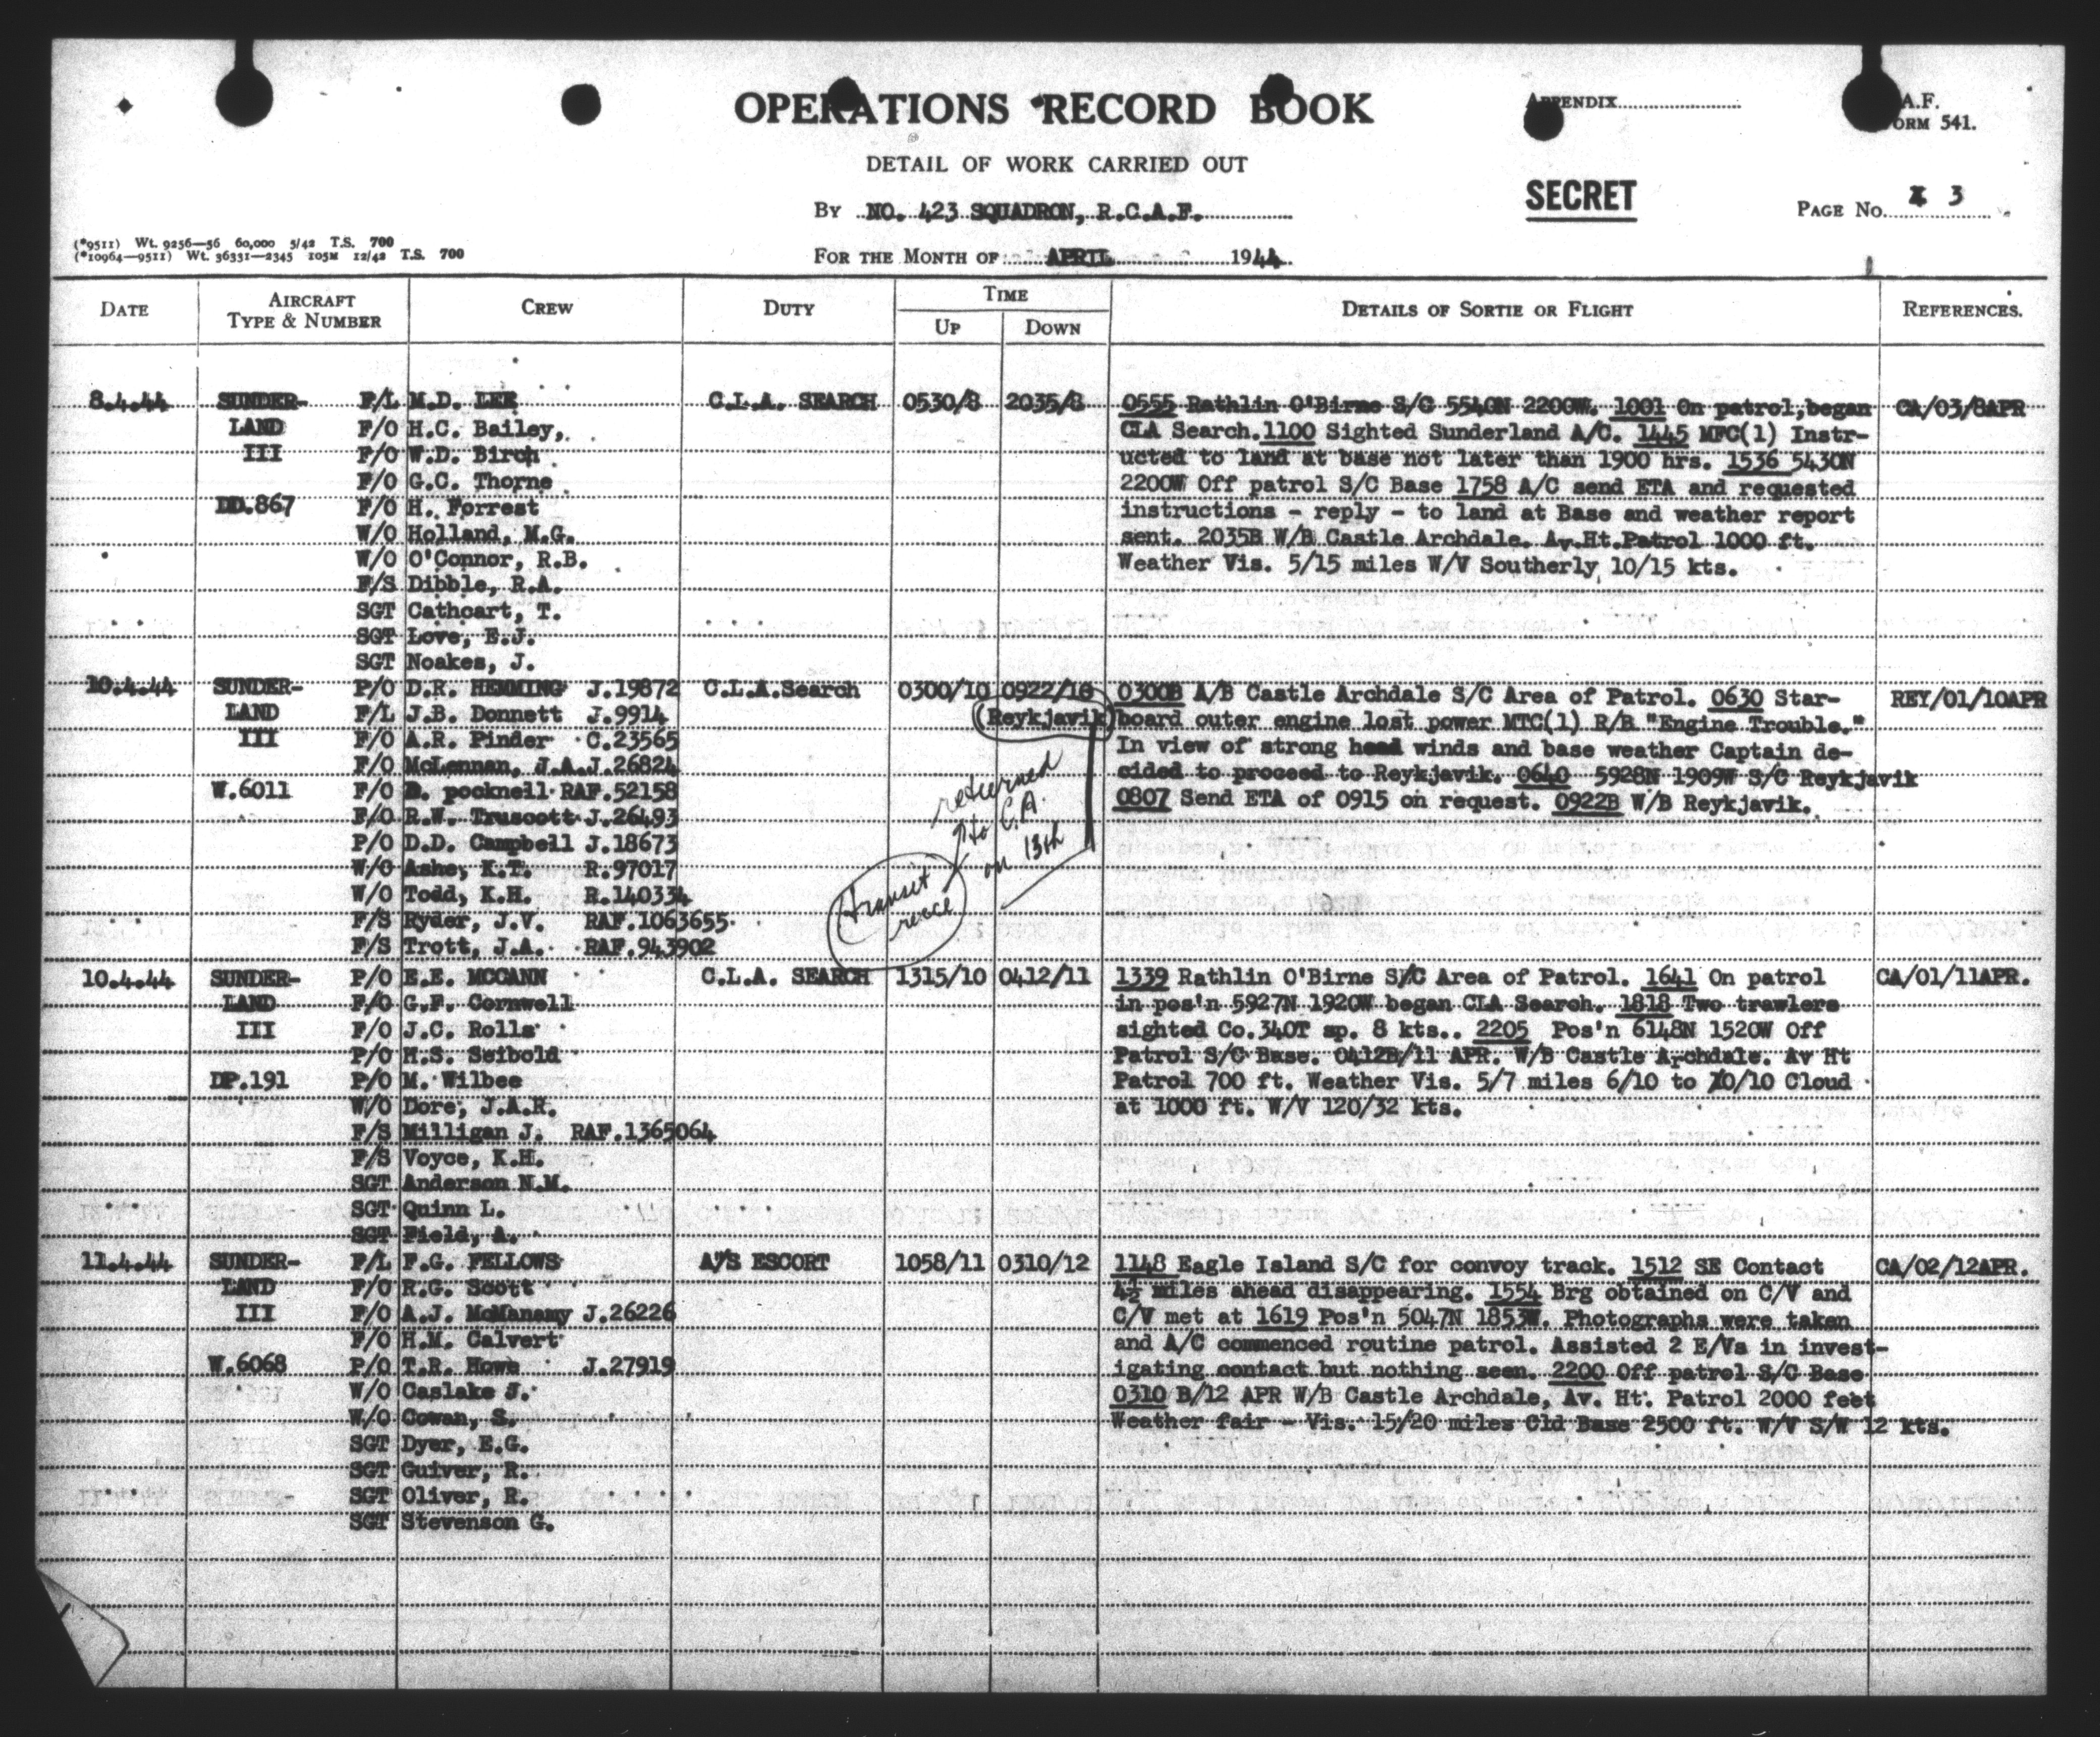 OPERATIONS RECORD BOOK
APPENDIX
A.F.
FORM 541.
DETAIL OF WORK CARRIED OUT
SECRET
By NO. 423 SQUADRON, R.C.A.F.
PAGE No. 3
(*9511) Wt. 9256—56 60,000 5/42 T.S. 700
(*10964—9511) Wt. 36331—2345 105M 12/42 T.S. 700
FOR THE MONTH OF APRIL 1944
DATE AIRCRAFT TYPE & NUMBER CREW DUTY TIME UP DOWN DETAILS OF SORTIE OR FLIGHT REFERENCES.
8.4.44 SUNDER- F/L M.D. LEE C.L.A. SEARCH 0530/8 2035/8 0555 Rathlin O'Birne S/C 5540N 2200W. 1001 On patrol, began CA/03/8APR
LAND F/O H.C. Bailey, CLA Search. 1100 Sighted Sunderland A/C. 1445 MFC(1) Instr-
III F/O W.D. Birch ucted to land at base not later than 1900 hrs. 1536 5430N
F/O G.C. Thorne 2200W Off patrol S/C Base 1758 A/C send ETA and requested
DD.867 F/O H. Forrest instructions - reply - to land at Base and weather report
W/O Holland, M.G. sent. 2035B W/B Castle Archdale. Av.Ht.Patrol 1000 ft.
W/O O'Connor, R.B. Weather Vis. 5/15 miles W/V Southerly 10/15 kts.
F/S Dibble, R.A.
SGT Cathcart, T.
SGT Love, E.J.
SGT Noakes, J.
10.4.44 SUNDER- P/O D.R. HEMMING J.19872 C.L.A.Search 0300/10 0922/10 0300B A/B Castle Archdale S/C Area of Patrol. 0630 Star- REY/01/10APR
LAND F/L J.B. Donnett J.9914 (Reykjavik) board outer engine lost power MTC(1) R/B "Engine Trouble."
III F/O A.R. Pinder C.23565 In view of strong head winds and base weather Captain de-
F/O McLennan, J.A.J.26824 cided to proceed to Reykjavik. 0640 5928N 1909W S/C Reykjavik
W.6011 F/O D. pocknell RAF.52158 0807 Send ETA of 0915 on request. 0922B W/B Reykjavik.
F/O R.W. Truscott J.26493
P/O D.D. Campbell J.18673
W/O Ashe, K.T. R.97017
W/O Todd, K.H. R.140334
F/S Ryder, J.V. RAF.1063655
F/S Trott, J.A. RAF.943902
returned
to C.A.
on 13th
transit
recce
10.4.44 SUNDER- P/O E.E. MCCANN C.L.A. SEARCH 1315/10 0412/11 1339 Rathlin O'Birne S/C Area of Patrol. 1641 On patrol CA/01/11APR.
LAND F/O G.F. Cornwell in pos'n 5927N 1920W began CLA Search. 1818 Two trawlers
III F/O J.C. Rolls sighted Co.340T sp. 8 kts.. 2205 Pos'n 6148N 1520W Off
P/O H.S. Seibold Patrol S/C Base. 0412B/11 APR. W/B Castle Archdale. Av Ht
DP.191 P/O M. Wilbee Patrol 700 ft. Weather Vis. 5/7 miles 6/10 to 10/10 Cloud
W/O Dore, J.A.R. at 1000 ft. W/V 120/32 kts.
F/S Milligan J. RAF.1365064
F/S Voyce, K.H.
SGT Anderson N.M.
SGT Quinn L.
SGT Field, A.
11.4.44 SUNDER- F/L F.G. FELLOWS A/S ESCORT 1058/11 0310/12 1148 Eagle Island S/C for convoy track. 1512 SE Contact CA/02/12APR.
LAND F/O R.G. Scott 4½ miles ahead disappearing. 1554 Brg obtained on C/V and
III F/O A.J. McManamy J.26226 C/V met at 1619 Pos'n 5047N 1853W. Photographs were taken
F/O H.M. Calvert and A/C commenced routine patrol. Assisted 2 E/Vs in invest-
W.6068 P/O T.R. Howe J.27919 igating contact but nothing seen. 2200 Off patrol S/C Base
W/O Caslake J. 0310 B/12 APR W/B Castle Archdale, Av. Ht. Patrol 2000 feet
W/O Cowan, S. Weather fair - Vis. 15/20 miles Cld Base 2500 ft. W/V S/W 12 kts.
SGT Dyer, E.G.
SGT Guiver, R.
SGT Oliver, R.
SGT Stevenson G.